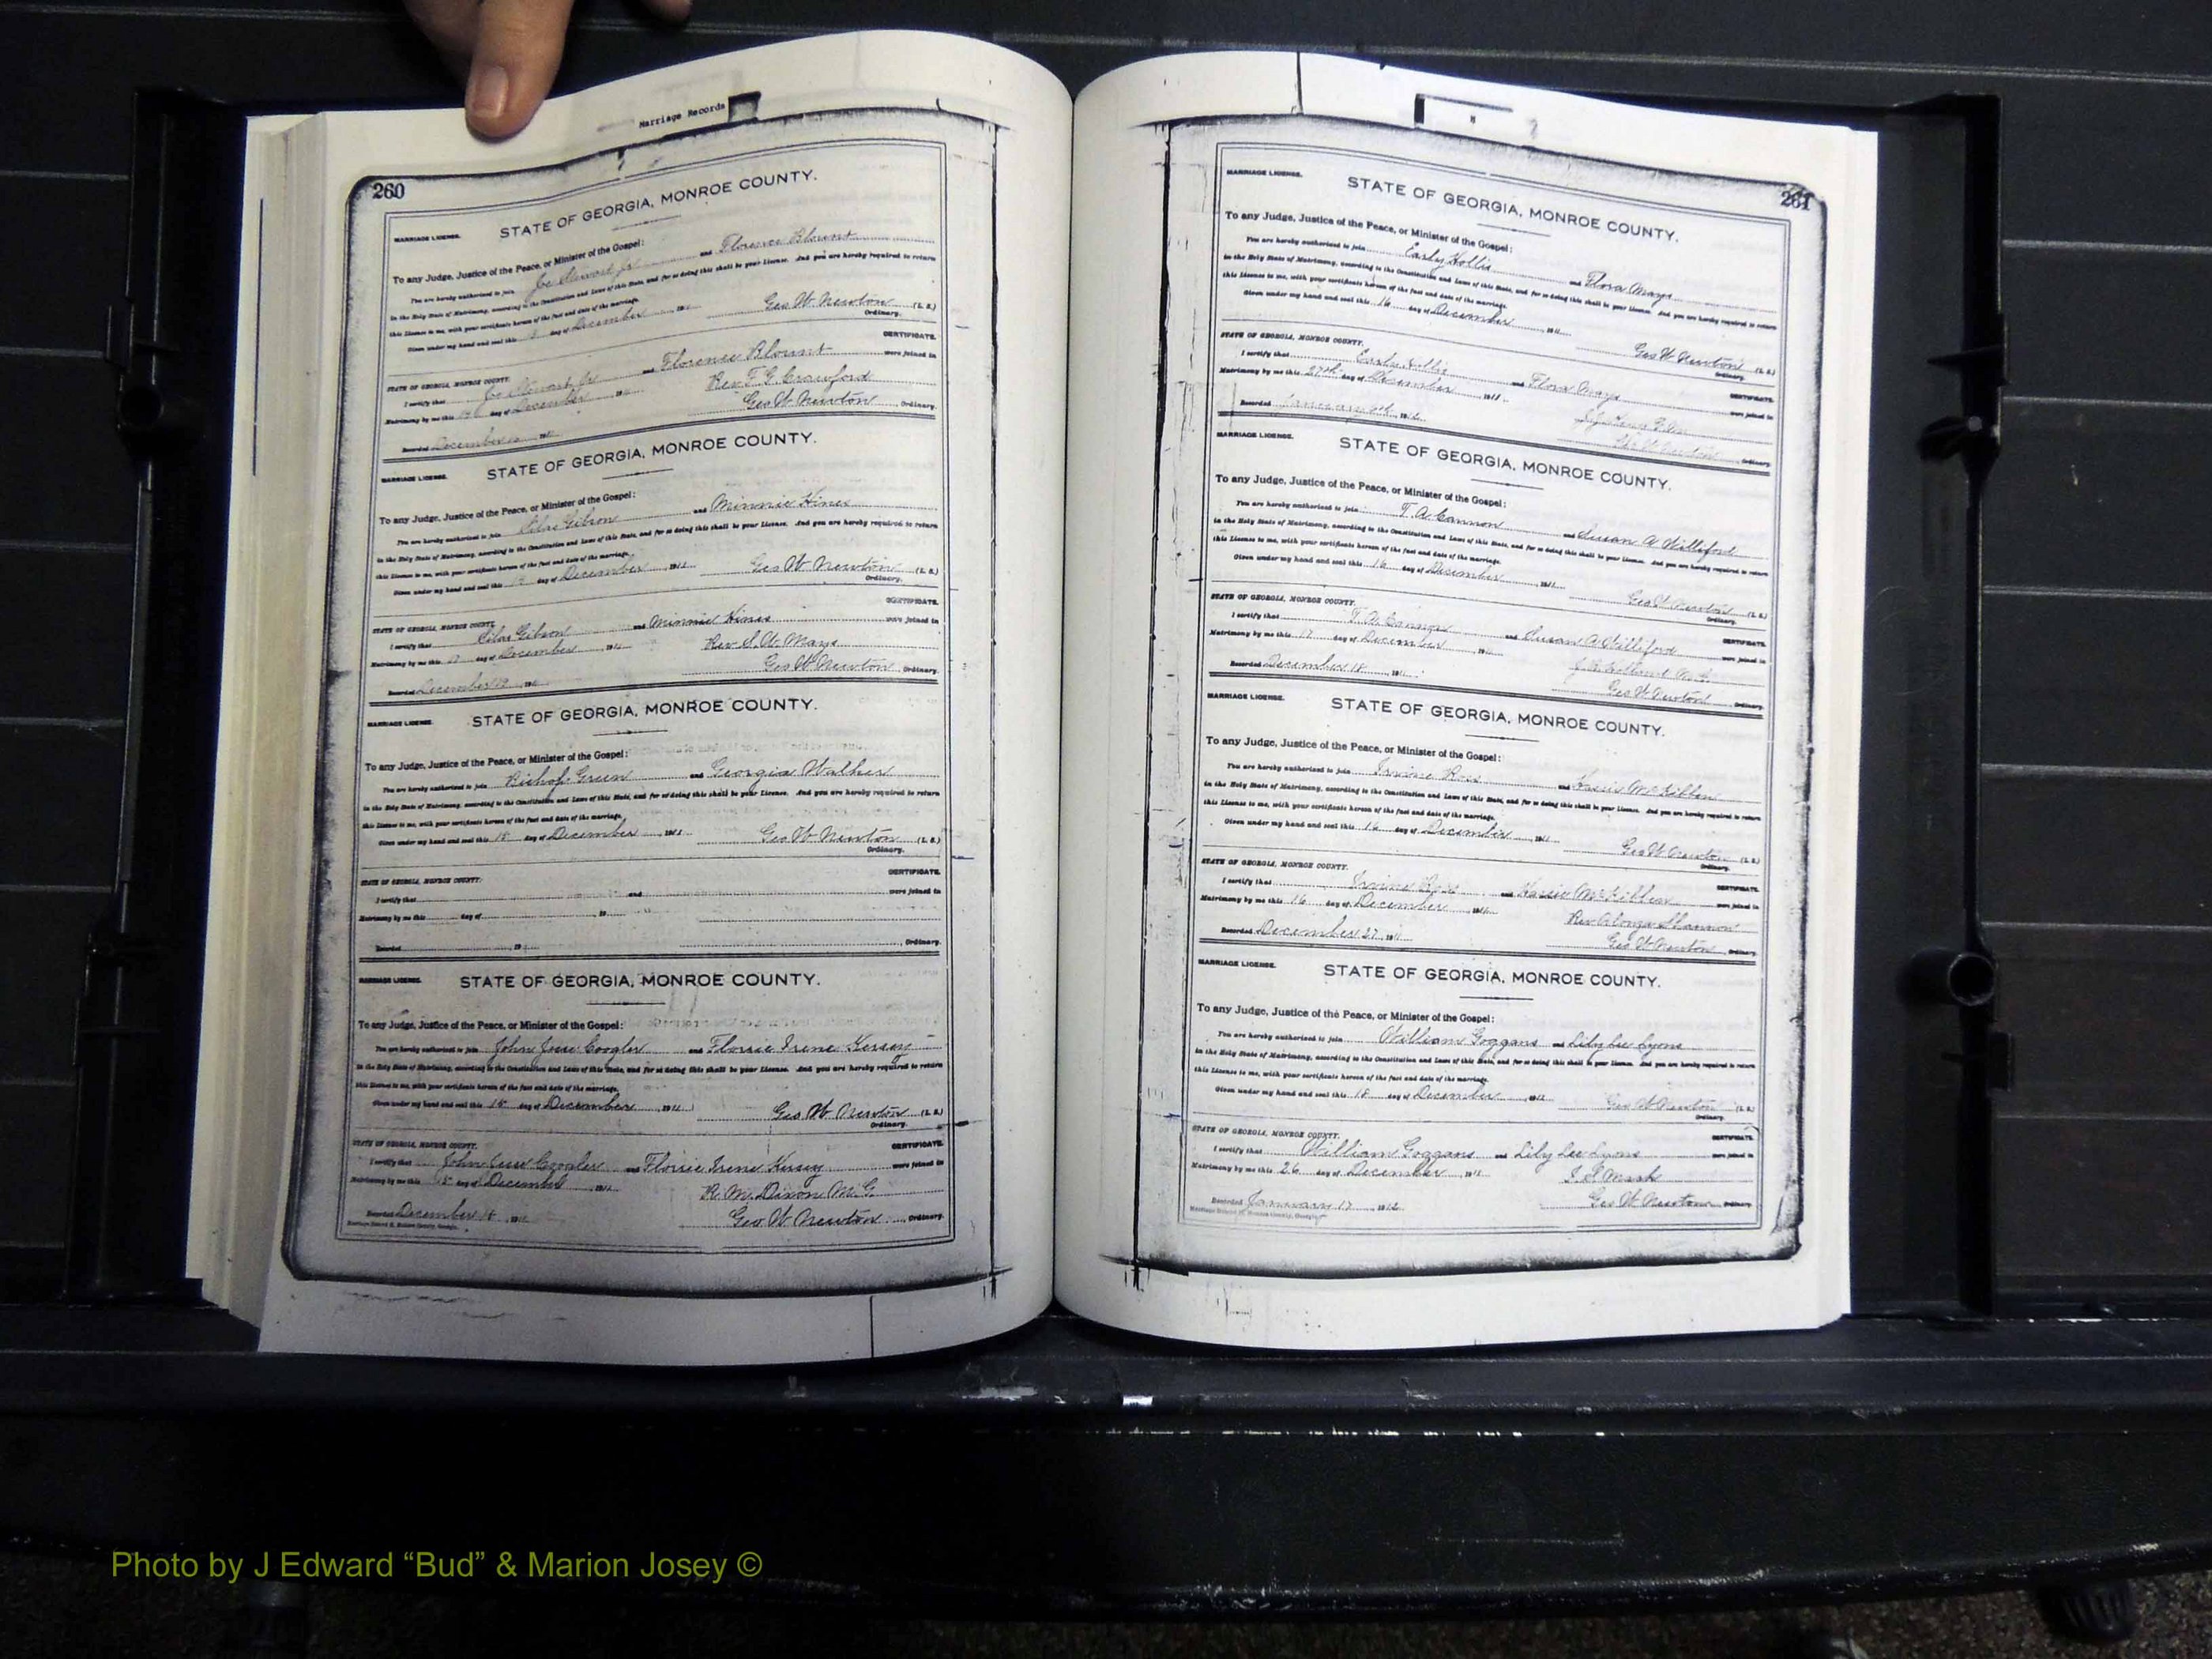 Marriage Records
260
MARRIAGE LICENSE.
STATE OF GEORGIA, MONROE COUNTY.
To any Judge, Justice of the Peace, or Minister of the Gospel:
You are hereby authorized to join Stewart Jr and Florence Blount
in the Holy State of Matrimony, according to the Constitution and Laws of this State, and for so doing this shall be your License. And you are hereby required to return
this License to me, with your certificate hereon of the fact and date of the marriage.
Given under my hand and seal this day of December 191
Geo W Newton (L. S.)
Ordinary.
CERTIFICATE.
STATE OF GEORGIA, MONROE COUNTY.
I certify that Stewart Jr and Florence Blount were joined in
Matrimony by me this day of December 191
Rev F. G. Crawford
Recorded December 191 Geo W Newton Ordinary.
MARRIAGE LICENSE.
STATE OF GEORGIA, MONROE COUNTY.
To any Judge, Justice of the Peace, or Minister of the Gospel:
You are hereby authorized to join Silas Gibson and Minnie Hines
in the Holy State of Matrimony, according to the Constitution and Laws of this State, and for so doing this shall be your License. And you are hereby required to return
this License to me, with your certificate hereon of the fact and date of the marriage.
Given under my hand and seal this day of December 1911
Geo W Newton (L. S.)
Ordinary.
CERTIFICATE.
STATE OF GEORGIA, MONROE COUNTY.
I certify that Silas Gibson and Minnie Hines were joined in
Matrimony by me this 17 day of December 1911
Rev S. W. Mays
Recorded December 191 Geo W Newton Ordinary.
MARRIAGE LICENSE.
STATE OF GEORGIA, MONROE COUNTY.
To any Judge, Justice of the Peace, or Minister of the Gospel:
You are hereby authorized to join Bishop Green and Georgia Walker
in the Holy State of Matrimony, according to the Constitution and Laws of this State, and for so doing this shall be your License. And you are hereby required to return
this License to me, with your certificate hereon of the fact and date of the marriage.
Given under my hand and seal this day of December 1911
Geo W Newton (L. S.)
Ordinary.
CERTIFICATE.
STATE OF GEORGIA, MONROE COUNTY.
I certify that and were joined in
Matrimony by me this day of 19
Recorded 19 Ordinary.
MARRIAGE LICENSE.
STATE OF GEORGIA, MONROE COUNTY.
To any Judge, Justice of the Peace, or Minister of the Gospel:
You are hereby authorized to join John Jesse Coogler and Florrie Irene Kersey
in the Holy State of Matrimony, according to the Constitution and Laws of this State, and for so doing this shall be your License. And you are hereby required to return
this License to me, with your certificate hereon of the fact and date of the marriage.
Given under my hand and seal this day of December 1911
Geo W Newton (L. S.)
Ordinary.
CERTIFICATE.
STATE OF GEORGIA, MONROE COUNTY.
I certify that John Jesse Coogler and Florrie Irene Kersey were joined in
Matrimony by me this day of December 1911
R. M. Dixon M. G.
Recorded December 18, 1911 Geo W Newton Ordinary.
261
MARRIAGE LICENSE.
STATE OF GEORGIA, MONROE COUNTY.
To any Judge, Justice of the Peace, or Minister of the Gospel:
You are hereby authorized to join Early Hollis and Flora Mays
in the Holy State of Matrimony, according to the Constitution and Laws of this State, and for so doing this shall be your License. And you are hereby required to return
this License to me, with your certificate hereon of the fact and date of the marriage.
Given under my hand and seal this 16 day of December 1911
Geo W Newton (L. S.)
Ordinary.
CERTIFICATE.
STATE OF GEORGIA, MONROE COUNTY.
I certify that Early Hollis and Flora Mays were joined in
Matrimony by me this 27th day of December 1911
Recorded January 1912 Geo W Newton Ordinary.
MARRIAGE LICENSE.
STATE OF GEORGIA, MONROE COUNTY.
To any Judge, Justice of the Peace, or Minister of the Gospel:
You are hereby authorized to join T. A. Cannon and Susan A Williford
in the Holy State of Matrimony, according to the Constitution and Laws of this State, and for so doing this shall be your License. And you are hereby required to return
this License to me, with your certificate hereon of the fact and date of the marriage.
Given under my hand and seal this 16 day of December 1911
Geo W Newton (L. S.)
Ordinary.
CERTIFICATE.
STATE OF GEORGIA, MONROE COUNTY.
I certify that T. A. Cannon and Susan A Williford were joined in
Matrimony by me this 17 day of December 1911
Recorded December 18 1911
Geo W Newton Ordinary.
MARRIAGE LICENSE.
STATE OF GEORGIA, MONROE COUNTY.
To any Judge, Justice of the Peace, or Minister of the Gospel:
You are hereby authorized to join Irvine Ross and McKibben
in the Holy State of Matrimony, according to the Constitution and Laws of this State, and for so doing this shall be your License. And you are hereby required to return
this License to me, with your certificate hereon of the fact and date of the marriage.
Given under my hand and seal this 16 day of December 1911
Geo W Newton (L. S.)
Ordinary.
CERTIFICATE.
STATE OF GEORGIA, MONROE COUNTY.
I certify that Irvine Ross and McKibben were joined in
Matrimony by me this 16 day of December 1911
Rev Alonza Shannon
Recorded December 27 1911 Geo W Newton Ordinary.
MARRIAGE LICENSE.
STATE OF GEORGIA, MONROE COUNTY.
To any Judge, Justice of the Peace, or Minister of the Gospel:
You are hereby authorized to join William Goggans and Lily Lee Lyons
in the Holy State of Matrimony, according to the Constitution and Laws of this State, and for so doing this shall be your License. And you are hereby required to return
this License to me, with your certificate hereon of the fact and date of the marriage.
Given under my hand and seal this 18 day of December 1911
Geo W Newton (L. S.)
Ordinary.
CERTIFICATE.
STATE OF GEORGIA, MONROE COUNTY.
I certify that William Goggans and Lily Lee Lyons were joined in
Matrimony by me this 26 day of December 1911
Recorded January 17 1912 Geo W Newton Ordinary.
Photo by J Edward “Bud” & Marion Josey ©